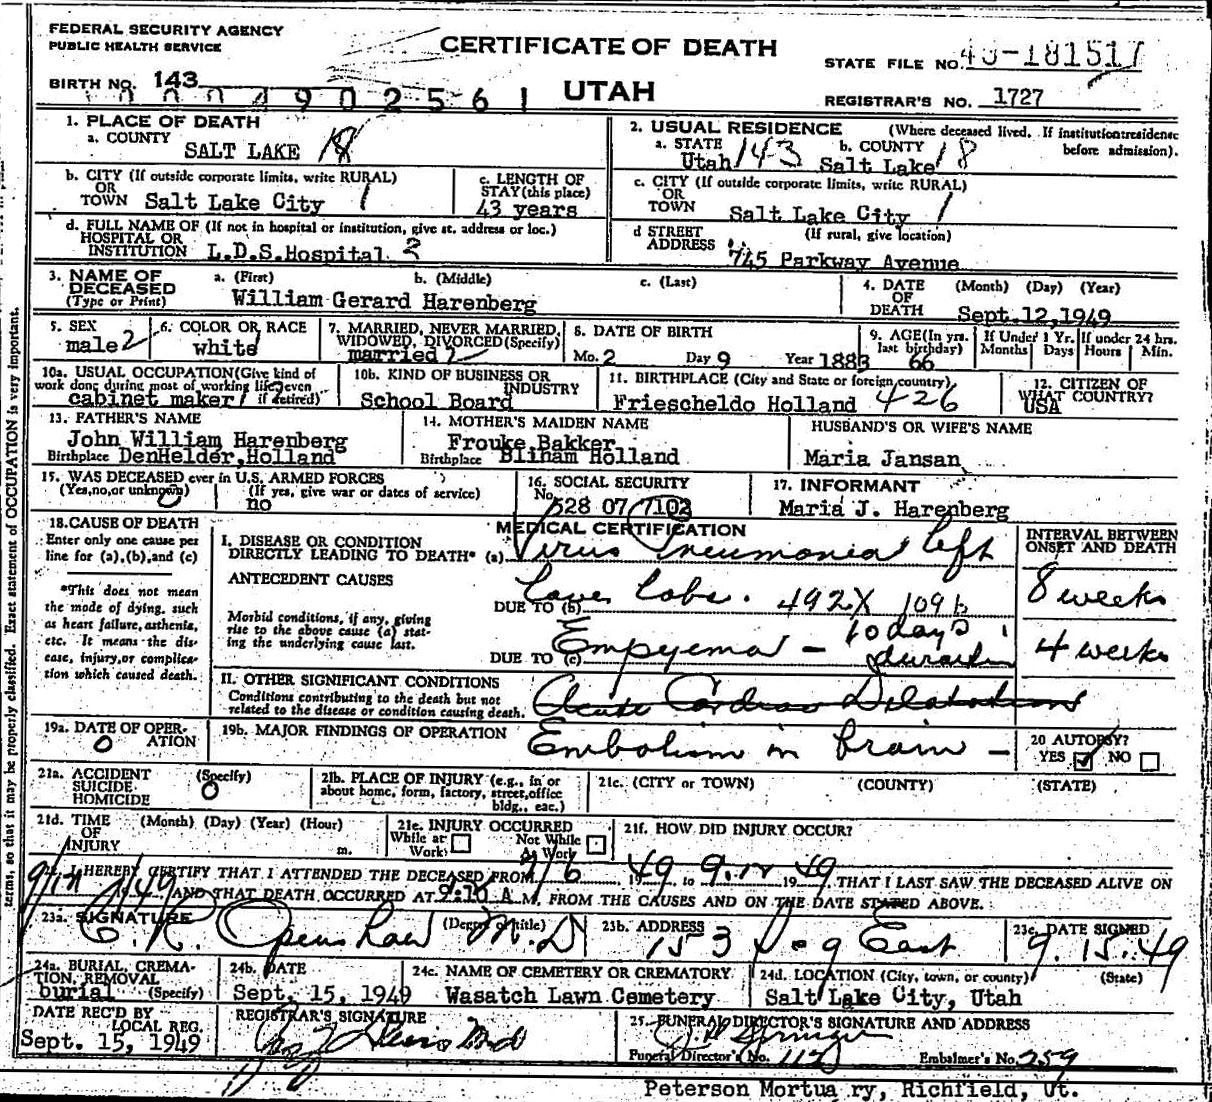 FEDERAL SECURITY AGENCY
PUBLIC HEALTH SERVICE
CERTIFICATE OF DEATH
UTAH
STATE FILE NO. 181517
BIRTH NO. 143
0004902561
REGISTRAR'S NO. 1727
1. PLACE OF DEATH
a. COUNTY
SALT LAKE 18
2. USUAL RESIDENCE (Where deceased lived. If institution residence before admission).
a. STATE b. COUNTY
Utah 143 Salt Lake 18
b. CITY (If outside corporate limits, write RURAL)
OR
TOWN Salt Lake City 1
c. LENGTH OF
STAY (this place)
43 years
c. CITY (If outside corporate limits, write RURAL)
OR
TOWN Salt Lake City 1
d. FULL NAME OF (If not in hospital or institution, give st. address or loc.)
HOSPITAL OR
INSTITUTION L.D.S.Hospital 2
d STREET (If rural, give location)
ADDRESS 745 Parkway Avenue
3. NAME OF a. (First) b. (Middle) c. (Last)
DECEASED
(Type or Print) William Gerard Harenberg
4. DATE (Month) (Day) (Year)
OF
DEATH Sept.12,1949
5. SEX
male 2
6. COLOR OR RACE
white 1
7. MARRIED, NEVER MARRIED,
WIDOWED, DIVORCED(Specify)
married 2
8. DATE OF BIRTH
Mo. 2 Day 9 Year 1883
9. AGE(In yrs.
last birthday)
66
If Under 1 Yr.
Months Days
If under 24 hrs.
Hours Min.
10a. USUAL OCCUPATION(Give kind of
work done during most of working life, even
if retired)
cabinet maker
10b. KIND OF BUSINESS OR
INDUSTRY
School Board
11. BIRTHPLACE (City and State or foreign country)
Friescheldo Holland 426
12. CITIZEN OF
WHAT COUNTRY?
USA
13. FATHER'S NAME
John William Harenberg
Birthplace DenHelder,Holland
14. MOTHER'S MAIDEN NAME
Frouke Bakker
Birthplace Bliham Holland
HUSBAND'S OR WIFE'S NAME
Maria Jansan
15. WAS DECEASED ever in U.S. ARMED FORCES
(Yes,no,or unknown) (If yes, give war or dates of service)
0 no
16. SOCIAL SECURITY
No. 528 07 7102
17. INFORMANT
Maria J. Harenberg
18. CAUSE OF DEATH
Enter only one cause per
line for (a),(b),and (c)
*This does not mean
the mode of dying, such
as heart failure, asthenia,
etc. It means the dis-
ease, injury, or complica-
tion which caused death.
MEDICAL CERTIFICATION
I. DISEASE OR CONDITION
DIRECTLY LEADING TO DEATH* (a) Virus Pneumonia left
ANTECEDENT CAUSES
DUE TO (b) Lower Lobe. 492X 109b
Morbid conditions, if any, giving
rise to the above cause (a) stat-
ing the underlying cause last.
DUE TO (c) Empyema - 10 days duration
INTERVAL BETWEEN
ONSET AND DEATH
8 weeks
4 weeks
II. OTHER SIGNIFICANT CONDITIONS
Conditions contributing to the death but not
related to the disease or condition causing death.
Acute Cardiac Dilatation
19a. DATE OF OPER-
ATION
0
19b. MAJOR FINDINGS OF OPERATION
Embolism in brain -
20 AUTOPSY?
YES NO
21a. ACCIDENT (Specify)
SUICIDE
HOMICIDE
0
21b. PLACE OF INJURY (e.g., in or
about home, form, factory, street,office
bldg., eac.)
21c. (CITY or TOWN) (COUNTY) (STATE)
21d. TIME (Month) (Day) (Year) (Hour)
OF
INJURY m.
21e. INJURY OCCURRED
While at Work Not While At Work
21f. HOW DID INJURY OCCUR?
I HEREBY CERTIFY THAT I ATTENDED THE DECEASED FROM 7/6 1949 to 9.12 1949 THAT I LAST SAW THE DECEASED ALIVE ON
1949 AND THAT DEATH OCCURRED AT A M. FROM THE CAUSES AND ON THE DATE STATED ABOVE.
23a. SIGNATURE (Degree or title)
C. R. Openshaw M.D
23b. ADDRESS
23c. DATE SIGNED
9.15.49
24a. BURIAL, CREMA-
TION, REMOVAL
burial (Specify)
24b. DATE
Sept. 15, 1949
24c. NAME OF CEMETERY OR CREMATORY
Wasatch Lawn Cemetery
24d. LOCATION (City, town, or county) (State)
Salt Lake City, Utah
DATE REC'D BY
LOCAL REG.
Sept. 15, 1949
REGISTRAR'S SIGNATURE
25. FUNERAL DIRECTOR'S SIGNATURE AND ADDRESS
Funeral Director's No. Embalmer's No. 259
Peterson Mortua ry, Richfield, Ut.
terms, so that it may be properly classified. Exact statement of OCCUPATION is very important.